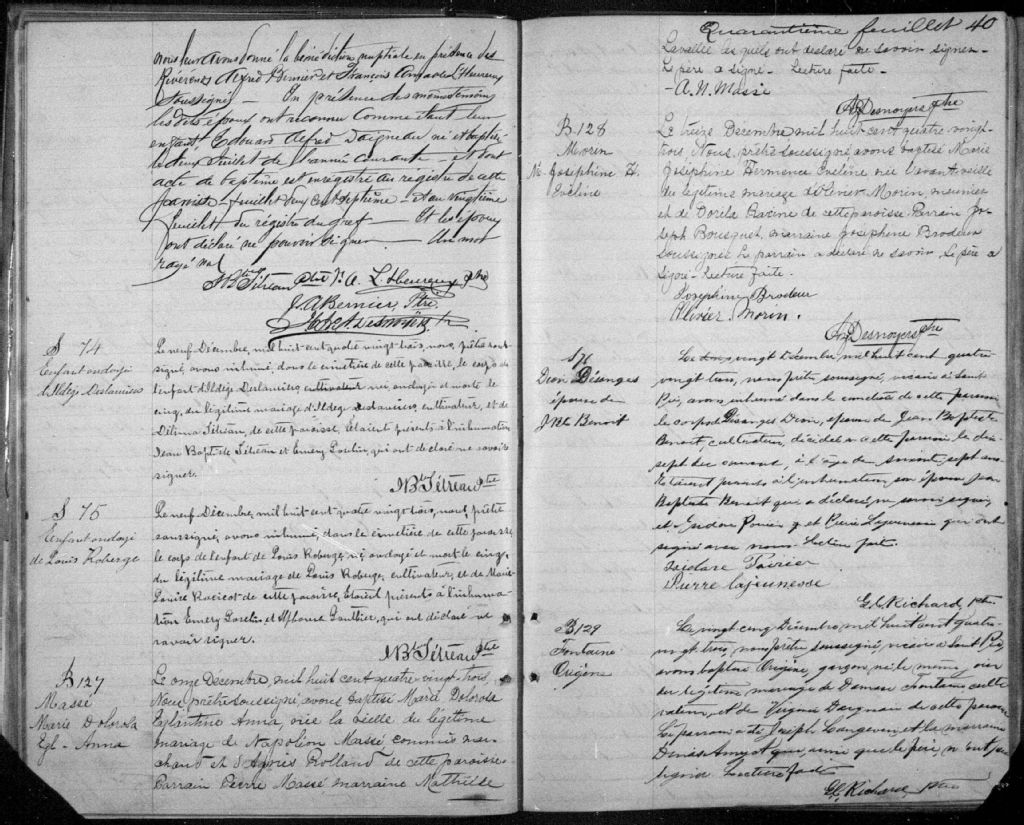 nous leur avons donné la bénédiction nuptiale en présence des
Révérends Alfred Bernier et François Amédée L'Heureux
Soussignés — En présence des mêmes témoins
les dits époux ont reconnu comme étant leur
enfant Edouard Alfred Daigneau né et baptisé
le deux Juillet de l'année courante — et dont
acte de baptême est enregistré au registre de cette
paroisse — feuillet septième — et au vingtième
feuillet du registre du greffe — Et les époux
ont déclaré ne pouvoir signer — Un mot
rayé nul
J. Bte Tétreau Ptre F. A. L'Heureux Ptre
J. A. Bernier Ptre
Desnoyers Ptr
S 74
Enfant ondoyé
d'Ildège Deslauriers
Le neuf Décembre, mil huit cent quatre vingt trois, nous, prêtre sous-
signé, avons inhumé, dans le cimetière de cette paroisse, le corps de
l'enfant d'Ildège Deslauriers cultivateur né, ondoyé et morte le
cinq, du légitime mariage d'Ildège Deslauriers, cultivateur, et de
Délima Tétreau, de cette paroisse. Étaient présents à l'inhumation
Jean Bapt. de Tétreau et Emery Gosselin, qui ont déclaré ne savoir
signer.
J. Bte Tétreau Ptre
S 75
Enfant ondoyé
de Louis Roberge
Le neuf Décembre, mil huit cent quatre vingt trois, nous, prêtre
soussigné, avons inhumé, dans le cimetière de cette paroisse,
le corps de l'enfant de Louis Roberge, né, ondoyé et mort le cinq,
du légitime mariage de Louis Roberge, cultivateur, et de Marie
Louise Racicot de cette paroisse, Étaient présents à l'inhuma-
tion Emery Gosselin et Alphonse Gauthier, qui ont déclaré ne
savoir signer.
J. Bte Tétreau Ptre
B 127
Massé
Marie Dolorosa
Egl- Anna
Le onze Décembre mil huit cent quatre vingt trois,
Nous prêtre soussigné avons baptisé Marie Dolorosa
Eglantine Anna, née la vieille du légitime
mariage de Napoléon Massé commis mar-
chand et d'Agnès Rolland de cette paroisse.
Parrain Pierre Massé marraine Mathilde
Quarantième feuillet 40
Lavallée lesquels ont déclaré ne savoir signer-
Le père a signé- Lecture faite-
- A. N. Massé
Desnoyers ptre
B 128
Morin
M- Josephine H.
Evéline
Le treize Decembre mil huit cent quatre vingt-
trois, Nous, prêtre soussigné avons baptisé Marie
Josephine Hermence Eveline née l'avant veille
du legitime mariage d'Olivier Morin, meunier
et de Dorila Racine de cette paroisse. Parrain Jo-
seph Bousquet, marraine Josephine Brodeur
soussignés Le parrain a déclaré ne savoir le père a
signé- Lecture faite.
Josephine Brodeur
Olivier Morin.
Desnoyers ptre
S 76
Dion Désanges
épouse de
J. Bte Benoit
Le vingt Décembre mil huit cent quatre-
vingt trois, nous prêtre soussigné, vicaire à Saint
Pie, avons inhumé dans le cimetière de cette paroisse
le corps de Désanges Dion, épouse de Jean Baptiste
Benoit, cultivateur, décédée en cette paroisse le dix-
sept du courant, à l'âge de soixante sept ans
Etaient présents à l'inhumation, son époux Jean
Baptiste Benoit qui a déclaré ne savoir signer,
et Isidore Poirier et Pierre Lajeunesse qui ont
signé avec nous. Lecture faite.
Isidore Poirier
Pierre Lajeunesse
Richard, Ptre
B 129
Fontaine
Origène
Le vingt-cinq Décembre, mil huit cent quatre-
vingt trois, nous prêtre soussigné, vicaire à Saint Pie,
avons baptisé Origène, garçon, né le même jour
du légitime mariage de Damase Fontaine culti-
vateur, et de Virginie Daignau de cette paroisse
Le parrain a été Joseph Langevin et la marraine
Denise Amyot qui ainsi que le père n'ont pu
signer. Lecture faite
Richard, Ptre